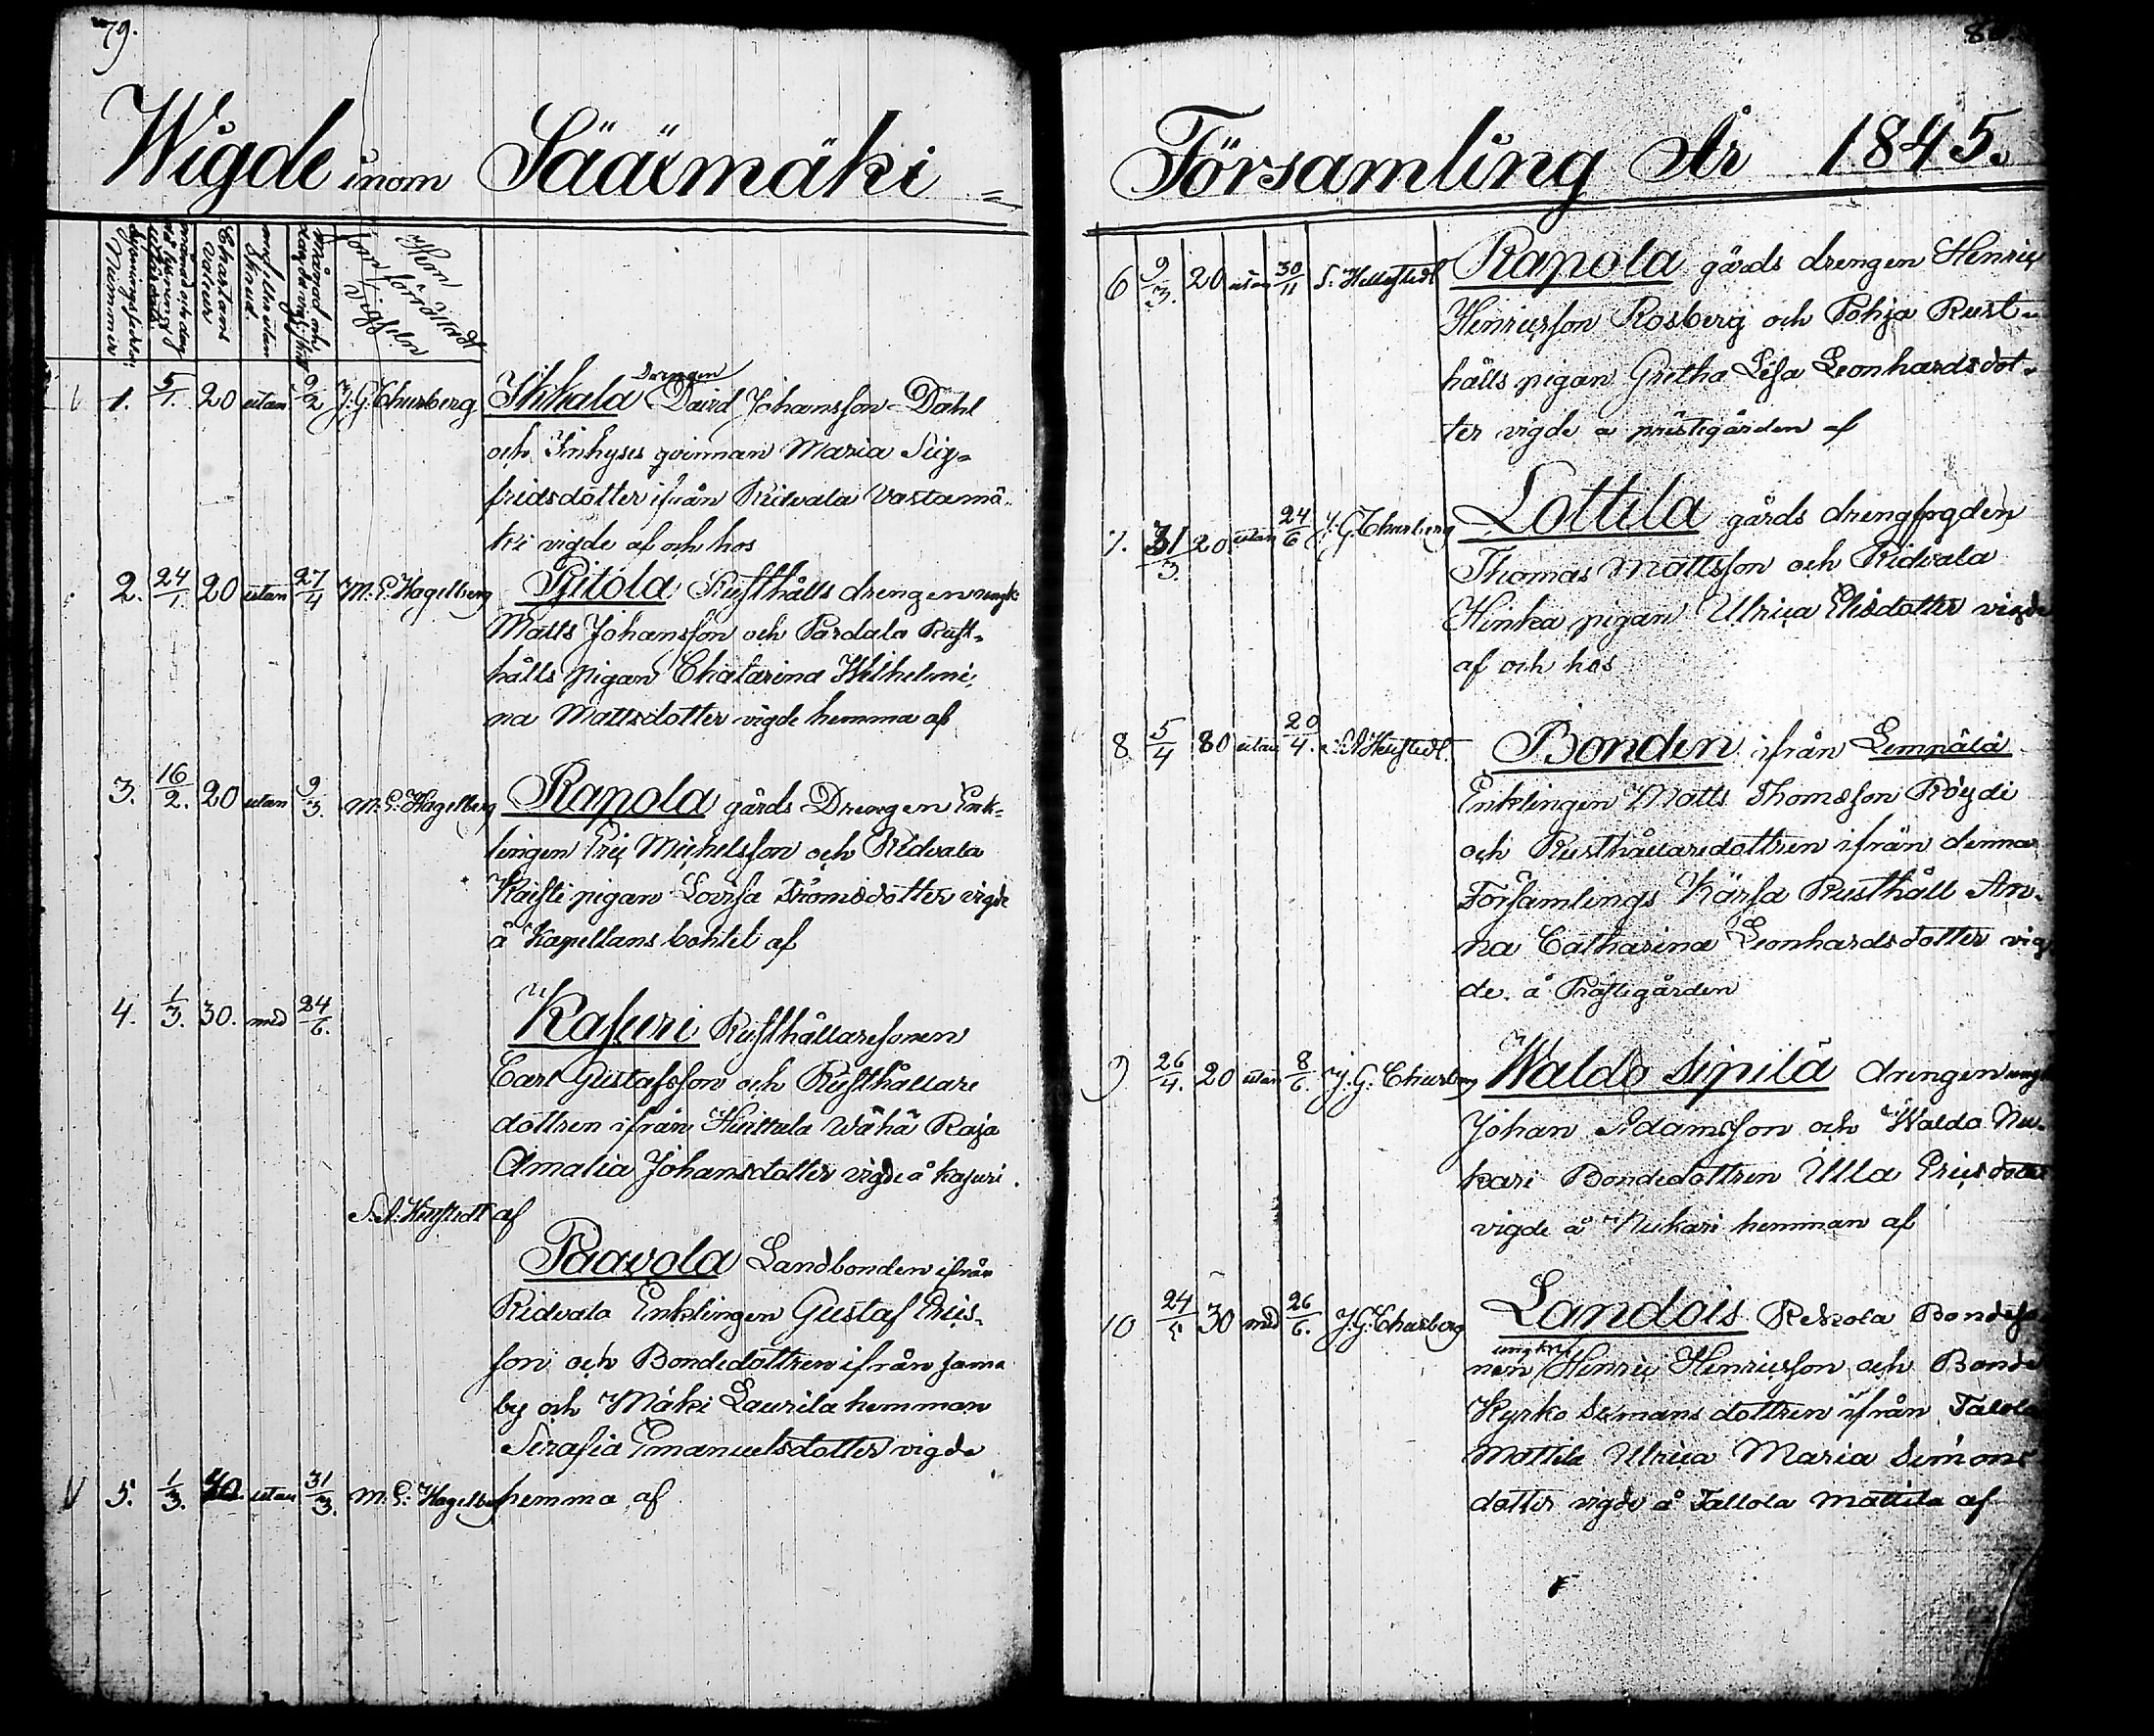 79.
Wigde inom Sääxmäki
Nummer
Chartens valeur
med eller utan
Hvem som förrättadt vigseln
1. 5/1. 20 utan 9/2 J. G. Churberg Ikkala Drengen David Johansson Dahl
och Inhyses qvinnan Maria Sig-
fridsdotter ifrån Ridvala Vastamä-
ki vigde af och hos
2. 24/1. 20 utan 27/4 M. E. Hagelberg Ritola Rusthålls drengen ungk.
Matts Johansson och Pardala Rust-
hålls pigan Chatarina Wilhelmi-
na Mattsdotter vigde hemma af
3. 16/2. 20 utan 9/3. M. E. Hagelberg Rapola gårds Drengen Enk-
lingen Eric Michelsson och Ridvala
Kaisti pigan Lovisa Thomsdotter vigde
å Kapellans bohlet af
4. 1/3. 30. med 24/6. Kasuri Rusthållaresonen
Carl Gustafsson och Rusthållare
dottren ifrån Huittula Wähä Raja
Amalia Johansdotter vigde å Kasuri
af
Paavola Landbonden ifrån
Ridvala Enklingen Gustaf Erics-
son och Bondedottren ifrån sama
by och Mäki Laurila hemman
Serafia Emanuelsdotter vigde
5. 1/3. utan 31/3. M. E. Hagelberg hemma af
80.
Församling År 1845.
6 9/3. 20 utan 30/11 Rapola gårds drengen Henric
Henricsson Rosberg och Pohja Rust-
hålls pigan Gretha Lisa Leonhardsdot-
ter vigde å prästegården af
7. 31/3. 20 utan 24/6 J. G. Churberg Lottila gårds drengfogden
Thomas Mattsson och Ridvala
Hinka pigan Ulrica Elisdotter vigde
af och hos
8 5/4 80 utan 20/4. Bonden ifrån Lempälä
Enklingen Matts Thomsson Röydi
och Rusthållaredottren ifrån denna
Församlings Kärsa Rusthåll An-
na Catharina Leonhardsdotter vig-
de å Prästegården
9 26/4. 20 utan 8/6. J. G. Churberg Waldo Sipilä drengen
Johan Adamsson och Waldo Nu-
kari Bondedottren Ulla Ericsdotter
vigde å Nukari hemman af
10 24/5 30 med 26/6. J. G. Churberg Landois Rekola Bondeso
nen ungkrl Henric Henricsson och Bonde
Kyrko Sexmans dottren ifrån Tallola
Mattila Ulrica Maria Simons
dotter vigde å Tallola Mattila af